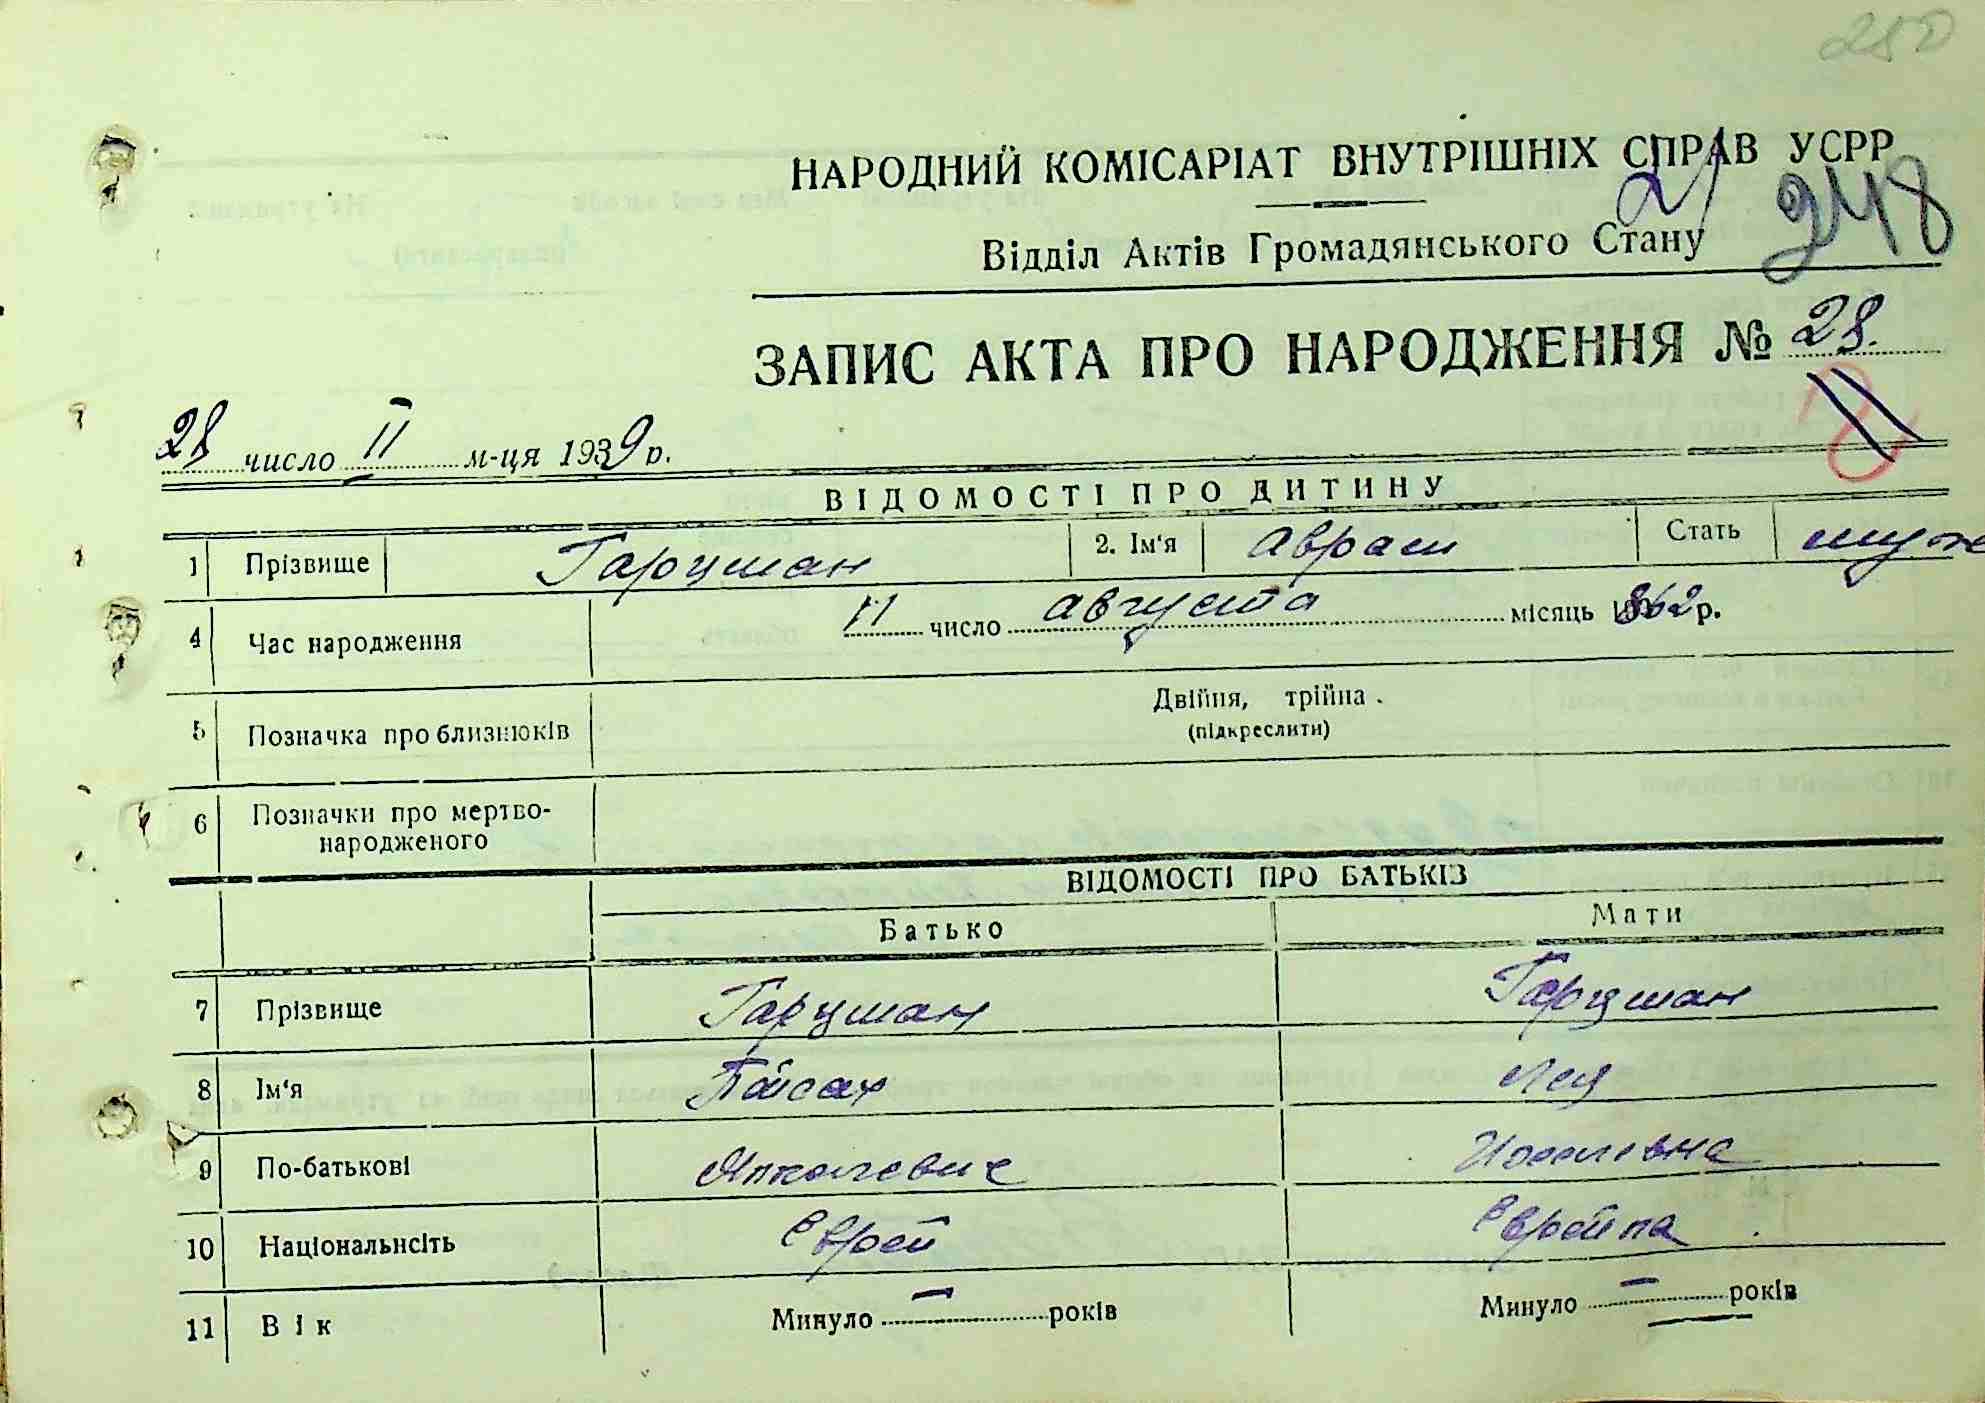 250
НАРОДНИЙ КОМІСАРІАТ ВНУТРІШНІХ СПРАВ УСРР
21 248
Відділ Актів Громадянського Стану
ЗАПИС АКТА ПРО НАРОДЖЕННЯ № 28.
28 число II м-ця 1939 р.
ВІДОМОСТІ ПРО ДИТИНУ
1 Прізвище Гарцман 2. Ім'я Аврам Стать муж
4 Час народження 11 число августа місяць 1862 р.
5 Позначка про близнюків Двійня, трійна.
(підкреслити)
6 Позначки про мертво-
народженого
ВІДОМОСТІ ПРО БАТЬКІЗ
Батько Мати
7 Прізвище Гарцман Гарцман
8 Ім'я Пайсах Лея
9 По-батькові
10 Національнсіть Еврей Еврейка
11 Вік Минуло — років Минуло — років